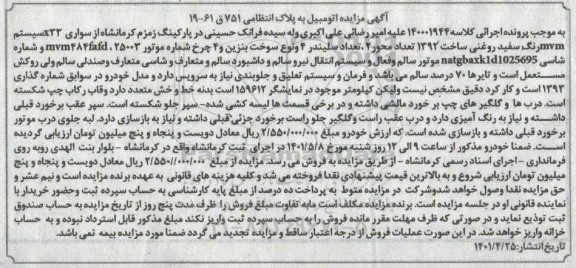 آگهی مزایده اتومبیل به پلاک انتظامی ۷۵۱ ق ۶۱-۱۹
به موجب پرونده اجرائی کلاسه ۱۴۰۰۰۱۹۴۴ علیه امیر رضائی علی اکبری وله سیده فرانک حسینی در پارکینگ زمزم کرمانشاه از سواری x۳۳ سیستم
mvm رنگ سفید روغنی ساخت ۱۳۹۲ تعداد محور ۲، تعداد سیلندر ۴ ونوع سوخت بنزین و ۴ چرخ شماره موتور mvm۴۸۴fafd۰۲۵۰۰۳ و شماره
شاسی natgbaxk1d1025695 موتور سالم وفعال وسیستم انتقال نیرو سالم و داشبورد سالم و متعارف و شاسی متعارف وصندلی سالم ولی روکش
مستعمل است و تایرها ۷۰ درصد سالم می باشد و فرمان و سیستم تعلیق و جلوبندی نیاز به سرویس دارد و مدل خودرو در سوابق شماره گذاری
۱۳۹۳ است و کار کرد دقیق مشخص نیست ولیکن کیلومتر موجود در نمایشگر ۱۵۹۶۱۲ است بدنه خط و خش متعدد دارد وقاب رکاب چپ شکسته
است. درب ها و گلگیر های چپ بر خورد مالشی داشته و در برخی قسمت ها لیسه کشی شده- سپر جلو شکسته است. سپر عقب برخورد قبلی
داشته و نیاز به رنگ آمیزی دارد و درب عقب راست وگلگیر جلو راست برخورد جزئی قبلی داشته و نیاز به بازسازی دارد. لبه جلوی درب موتور
برخورد قبلی داشته و بازسازی شده است، که ارزش خودرو مبلغ ۲/۵۵۰/۰۰۰/۰۰۰ ریال معادل دویست و پنجاه و پنج میلیون تومان ارزیابی گردیده
است. ضمنا خودرو مذکور از ساعت ۹ الی ۱۲ روز شنبه مورخ ۱۴۰۱/۵/۸ در اجرای ثبت کرمانشاه واقع در کرمانشاه - بلوار بنت الهدی روبه روی
فرمانداری - اجرای اسناد رسمی کرمانشاه - از طریق مزایده به فروش می رسد. مزایده از مبلغ ۲/۵۵۰/۰۰۰/۰۰۰ ریال معادل دویست و پنجاه و پنج
میلیون تومان ارزیابی شروع و به بالاترین قیمت پیشنهادی نقدا فروخته می شد و کلیه هزینه های قانونی به عهده برنده مزایده است و نیم عشر و
حق مزایده نقدا وصول خواهد شدوشرکت در مزایده منوط به پرداخت ده درصد از مبلغ پایه کارشناسی به حساب سپرده ثبت وحضور خریدار با
نماینده قانونی او در جلسه مزایده است. برنده مزایده مکلف است مابه تفاوت مبلغ فروش را ظرف مدت پنج روز از تاریخ مزایده به حساب صندوق
ثبت تودیع نماید و در صورتی که ظرف مهلت مقرر مانده فروش را به حساب سپرده ثبت واریز نکند مبلغ مذکور قابل استرداد نبوده و به حساب
خزانه واریز خواهد شد. در این صورت عملیات فروش از درجه اعتبار ساقط و مزایده تجدید می گردد ضمنا مورد مزایده بیمه نمی باشد.
تاریخ انتشار: ۱۴۰۱/۴/۲۵